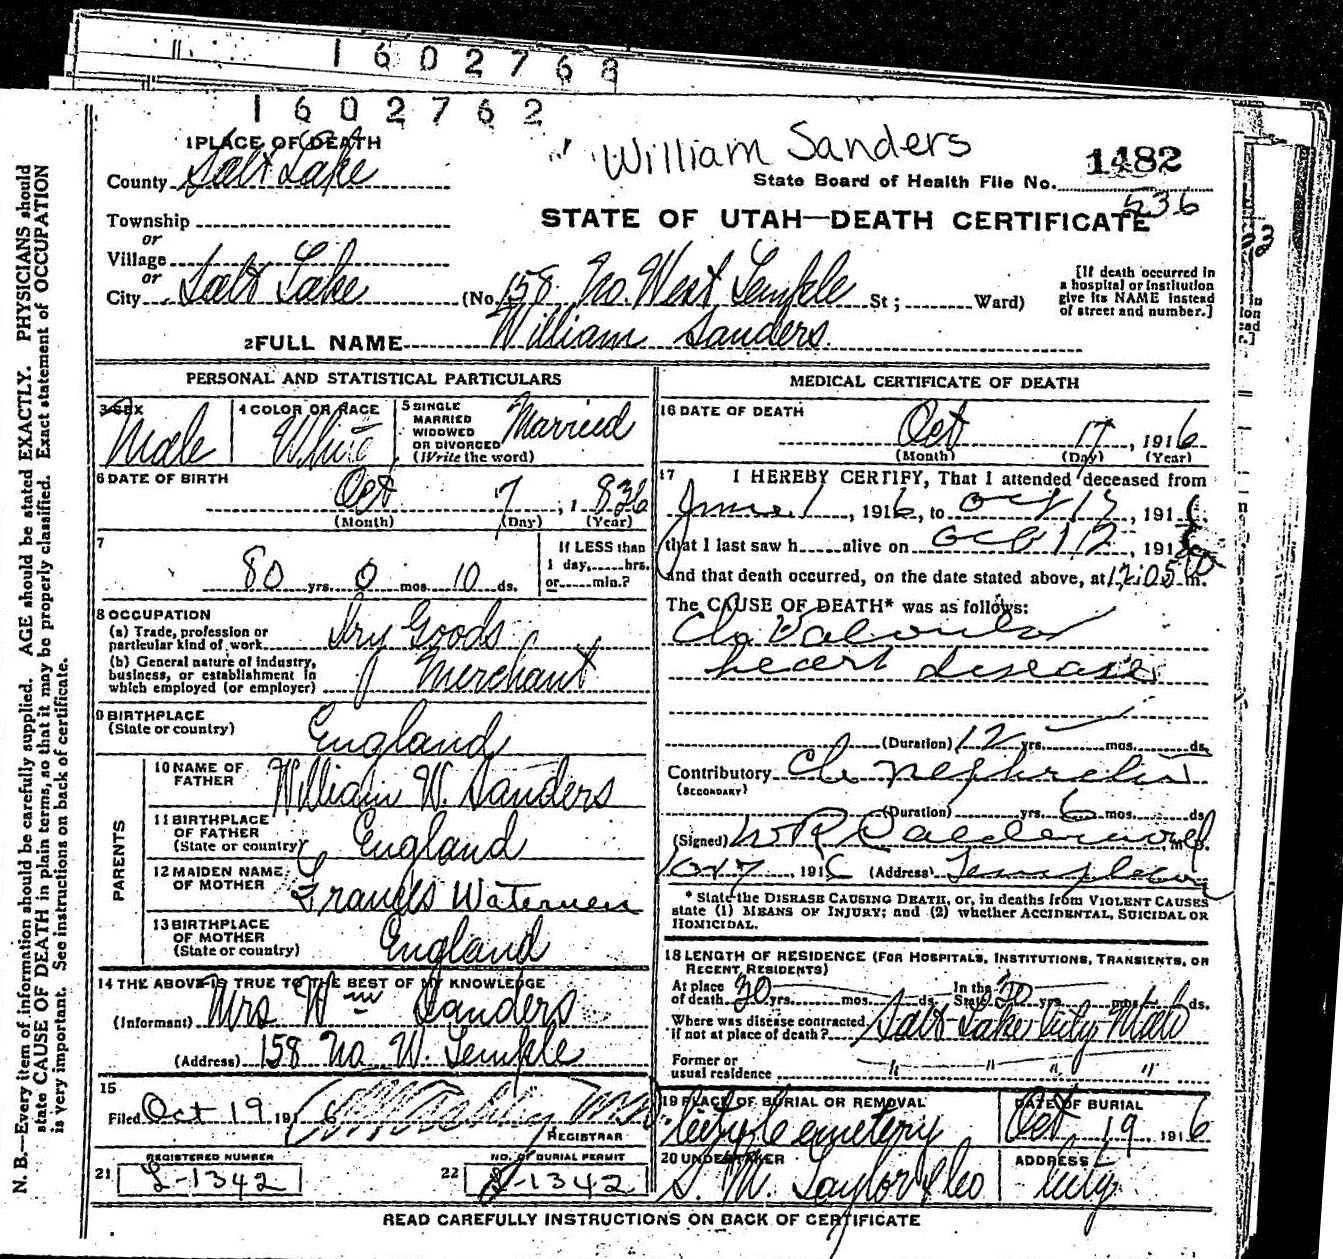 1602768
1602762
William Sanders
1482
State Board of Health File No. 536
STATE OF UTAH—DEATH CERTIFICATE
1 PLACE OF DEATH
County Salt Lake
Township
or
Village
or
City Salt Lake (No. 158 No. West Temple St; Ward)
[If death occurred in
a hospital or institution
give its NAME instead
of street and number.]
2 FULL NAME William Sanders.
PERSONAL AND STATISTICAL PARTICULARS
3 SEX Male
4 COLOR OR RACE White
5 SINGLE
MARRIED
WIDOWED
OR DIVORCED
(Write the word) Married
6 DATE OF BIRTH
Oct 7, 1836
(Month) (Day) (Year)
7
80 yrs. 0 mos. 10 ds.
If LESS than
1 day, hrs.
or min.?
8 OCCUPATION
(a) Trade, profession or
particular kind of work Dry Goods
(b) General nature of industry,
business, or establishment in
which employed (or employer) Merchant
9 BIRTHPLACE
(State or country) England
PARENTS
10 NAME OF
FATHER William W. Sanders
11 BIRTHPLACE
OF FATHER
(State or country) England
12 MAIDEN NAME
OF MOTHER Frances
13 BIRTHPLACE
OF MOTHER
(State or country) England
14 THE ABOVE IS TRUE TO THE BEST OF MY KNOWLEDGE
(Informant) Mrs Wm Sanders
(Address) 158 No W. Temple
15
Filed Oct 19 1916
REGISTRAR
REGISTERED NUMBER
21 1342
NO. OF BURIAL PERMIT
22 1342
MEDICAL CERTIFICATE OF DEATH
16 DATE OF DEATH
Oct 17, 1916
(Month) (Day) (Year)
17 I HEREBY CERTIFY, That I attended deceased from
June 1, 1916, to Oct 17, 191
that I last saw h alive on Oct, 191
and that death occurred, on the date stated above, at 12:05 m.
The CAUSE OF DEATH* was as follows:
Ch Valvular
heart disease
(Duration) 12 yrs. mos. ds.
Contributory Ch nephritis
(SECONDARY)
(Duration) yrs. 6 mos. ds
(Signed) W R Calderwood
, 191 (Address)
* State the DISEASE CAUSING DEATH, or, in deaths from VIOLENT CAUSES
state (1) MEANS OF INJURY; and (2) whether ACCIDENTAL, SUICIDAL OR
HOMICIDAL.
18 LENGTH OF RESIDENCE (FOR HOSPITALS, INSTITUTIONS, TRANSIENTS, OR
RECENT RESIDENTS)
At place
of death 30 yrs. mos. ds.
In the
State yrs. mos. ds.
Where was disease contracted
if not at place of death? Salt Lake City
Former or
usual residence " " " "
19 PLACE OF BURIAL OR REMOVAL
City Cemetery
DATE OF BURIAL
Oct 19, 1916
20 UNDERTAKER
S. M. Taylor & Co
ADDRESS
City
READ CAREFULLY INSTRUCTIONS ON BACK OF CERTIFICATE
N. B.—Every item of information should be carefully supplied. AGE should be stated EXACTLY. PHYSICIANS should
state CAUSE OF DEATH in plain terms, so that it may be properly classified. Exact statement of OCCUPATION
is very important. See instructions on back of certificate.